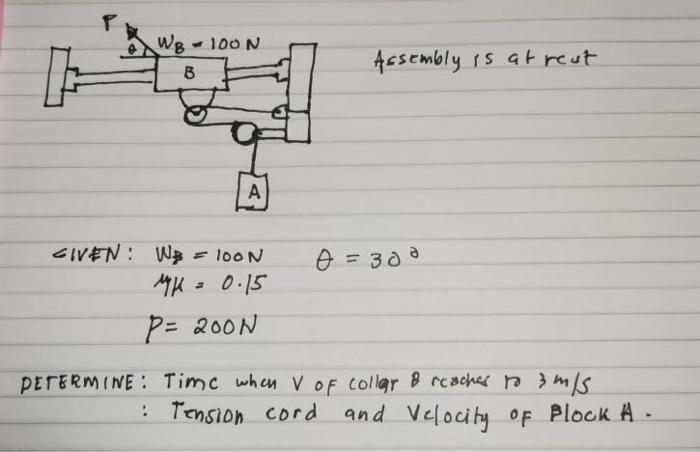 P
θ WB = 100N
B
Assembly is at rest
A
GIVEN: WB = 100N θ = 30°
μK = 0.15
P= 200N
DETERMINE: Time when V of collar B reaches to 3 m/s
: Tension cord and Velocity of Block A.